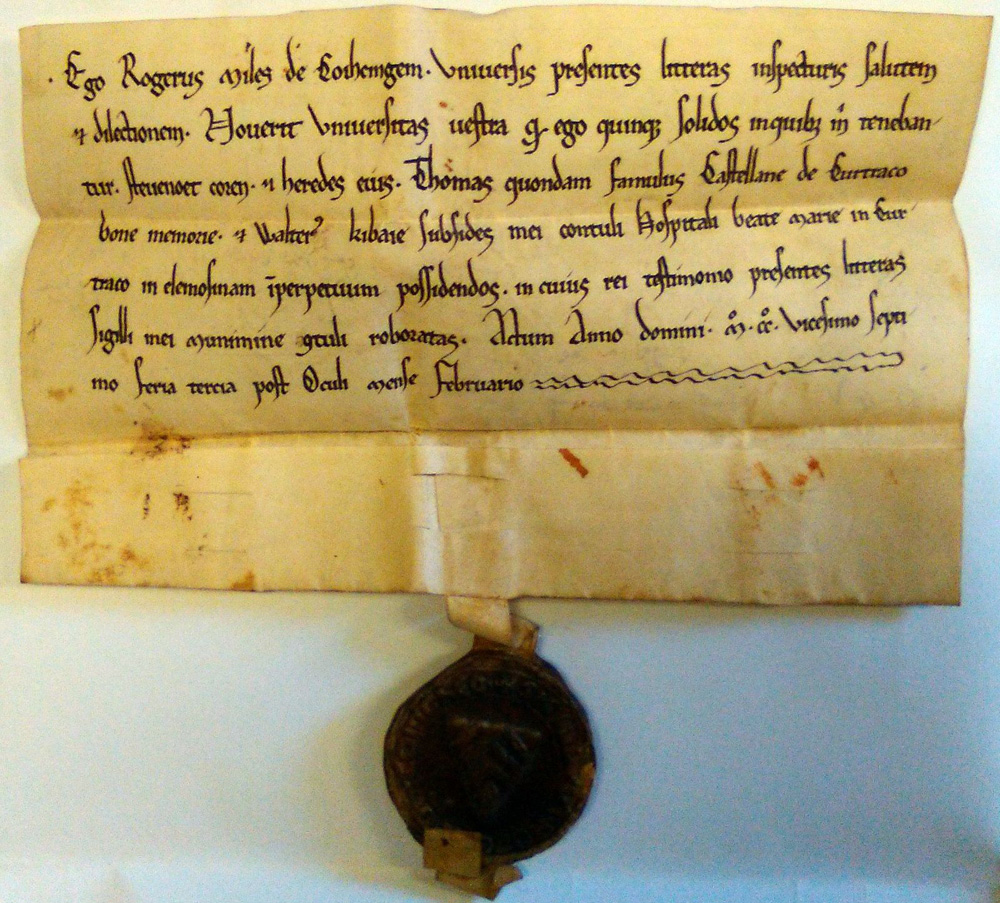 · Ego Rogerus Miles de Coihemgem. Vniuersis presentes litteras inspecturis salutem
⁊ dilectionem. Nouerit Vniuersitas uestra ꝙ ego quinqꝫ solidos inquibꝫ m̅ teneban-
tur. Steuenoet coren. ⁊ heredes eius. Thomas quondam famulus Castellane de Curtraco
bone memorie. ⁊ Walter᷒ kibaie subsides mei contuli Hospitali beate marie in Cur
traco in elemosinam īperpetuum possidendos. in cuius rei testimonio presentes litteras
sigilli mei munimine ꝯtuli roboratas. Actum Anno domini. M̊. cc̊. vicesimo septi
mo feria tercia post Oculi mense Februario